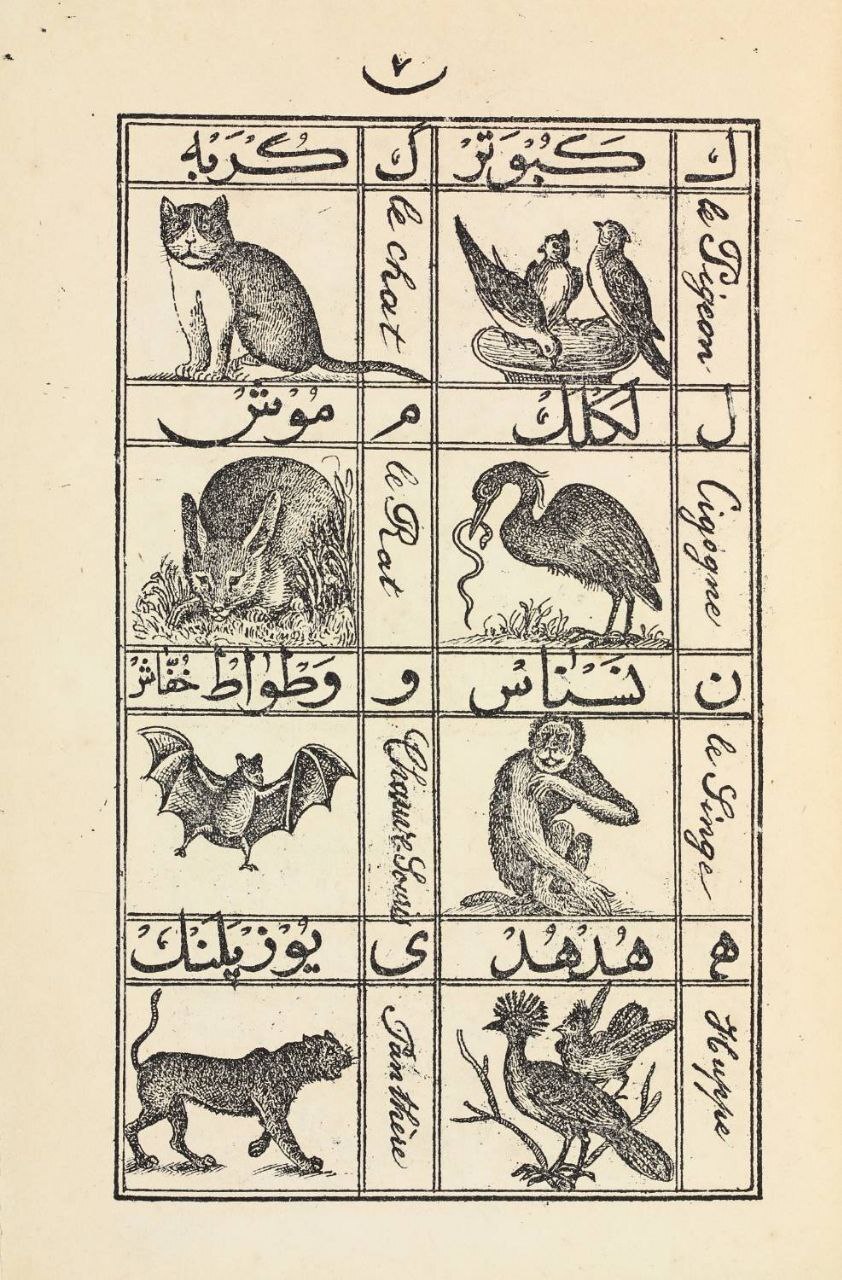 ۷
ك كَبُوتَرْ گ كُرْبَهْ
le Pigeon
le chat
ل لَكْلَكْ م مُوْشْ
Cigogne
le Rat
ن نَسْنَاسْ و وَطْوَاطْ خُفَّاشْ
le Singe
Chauve Souris
ه هُدْهُدْ ى يُوْزْپَلَنْكْ
Huppe
Panthère